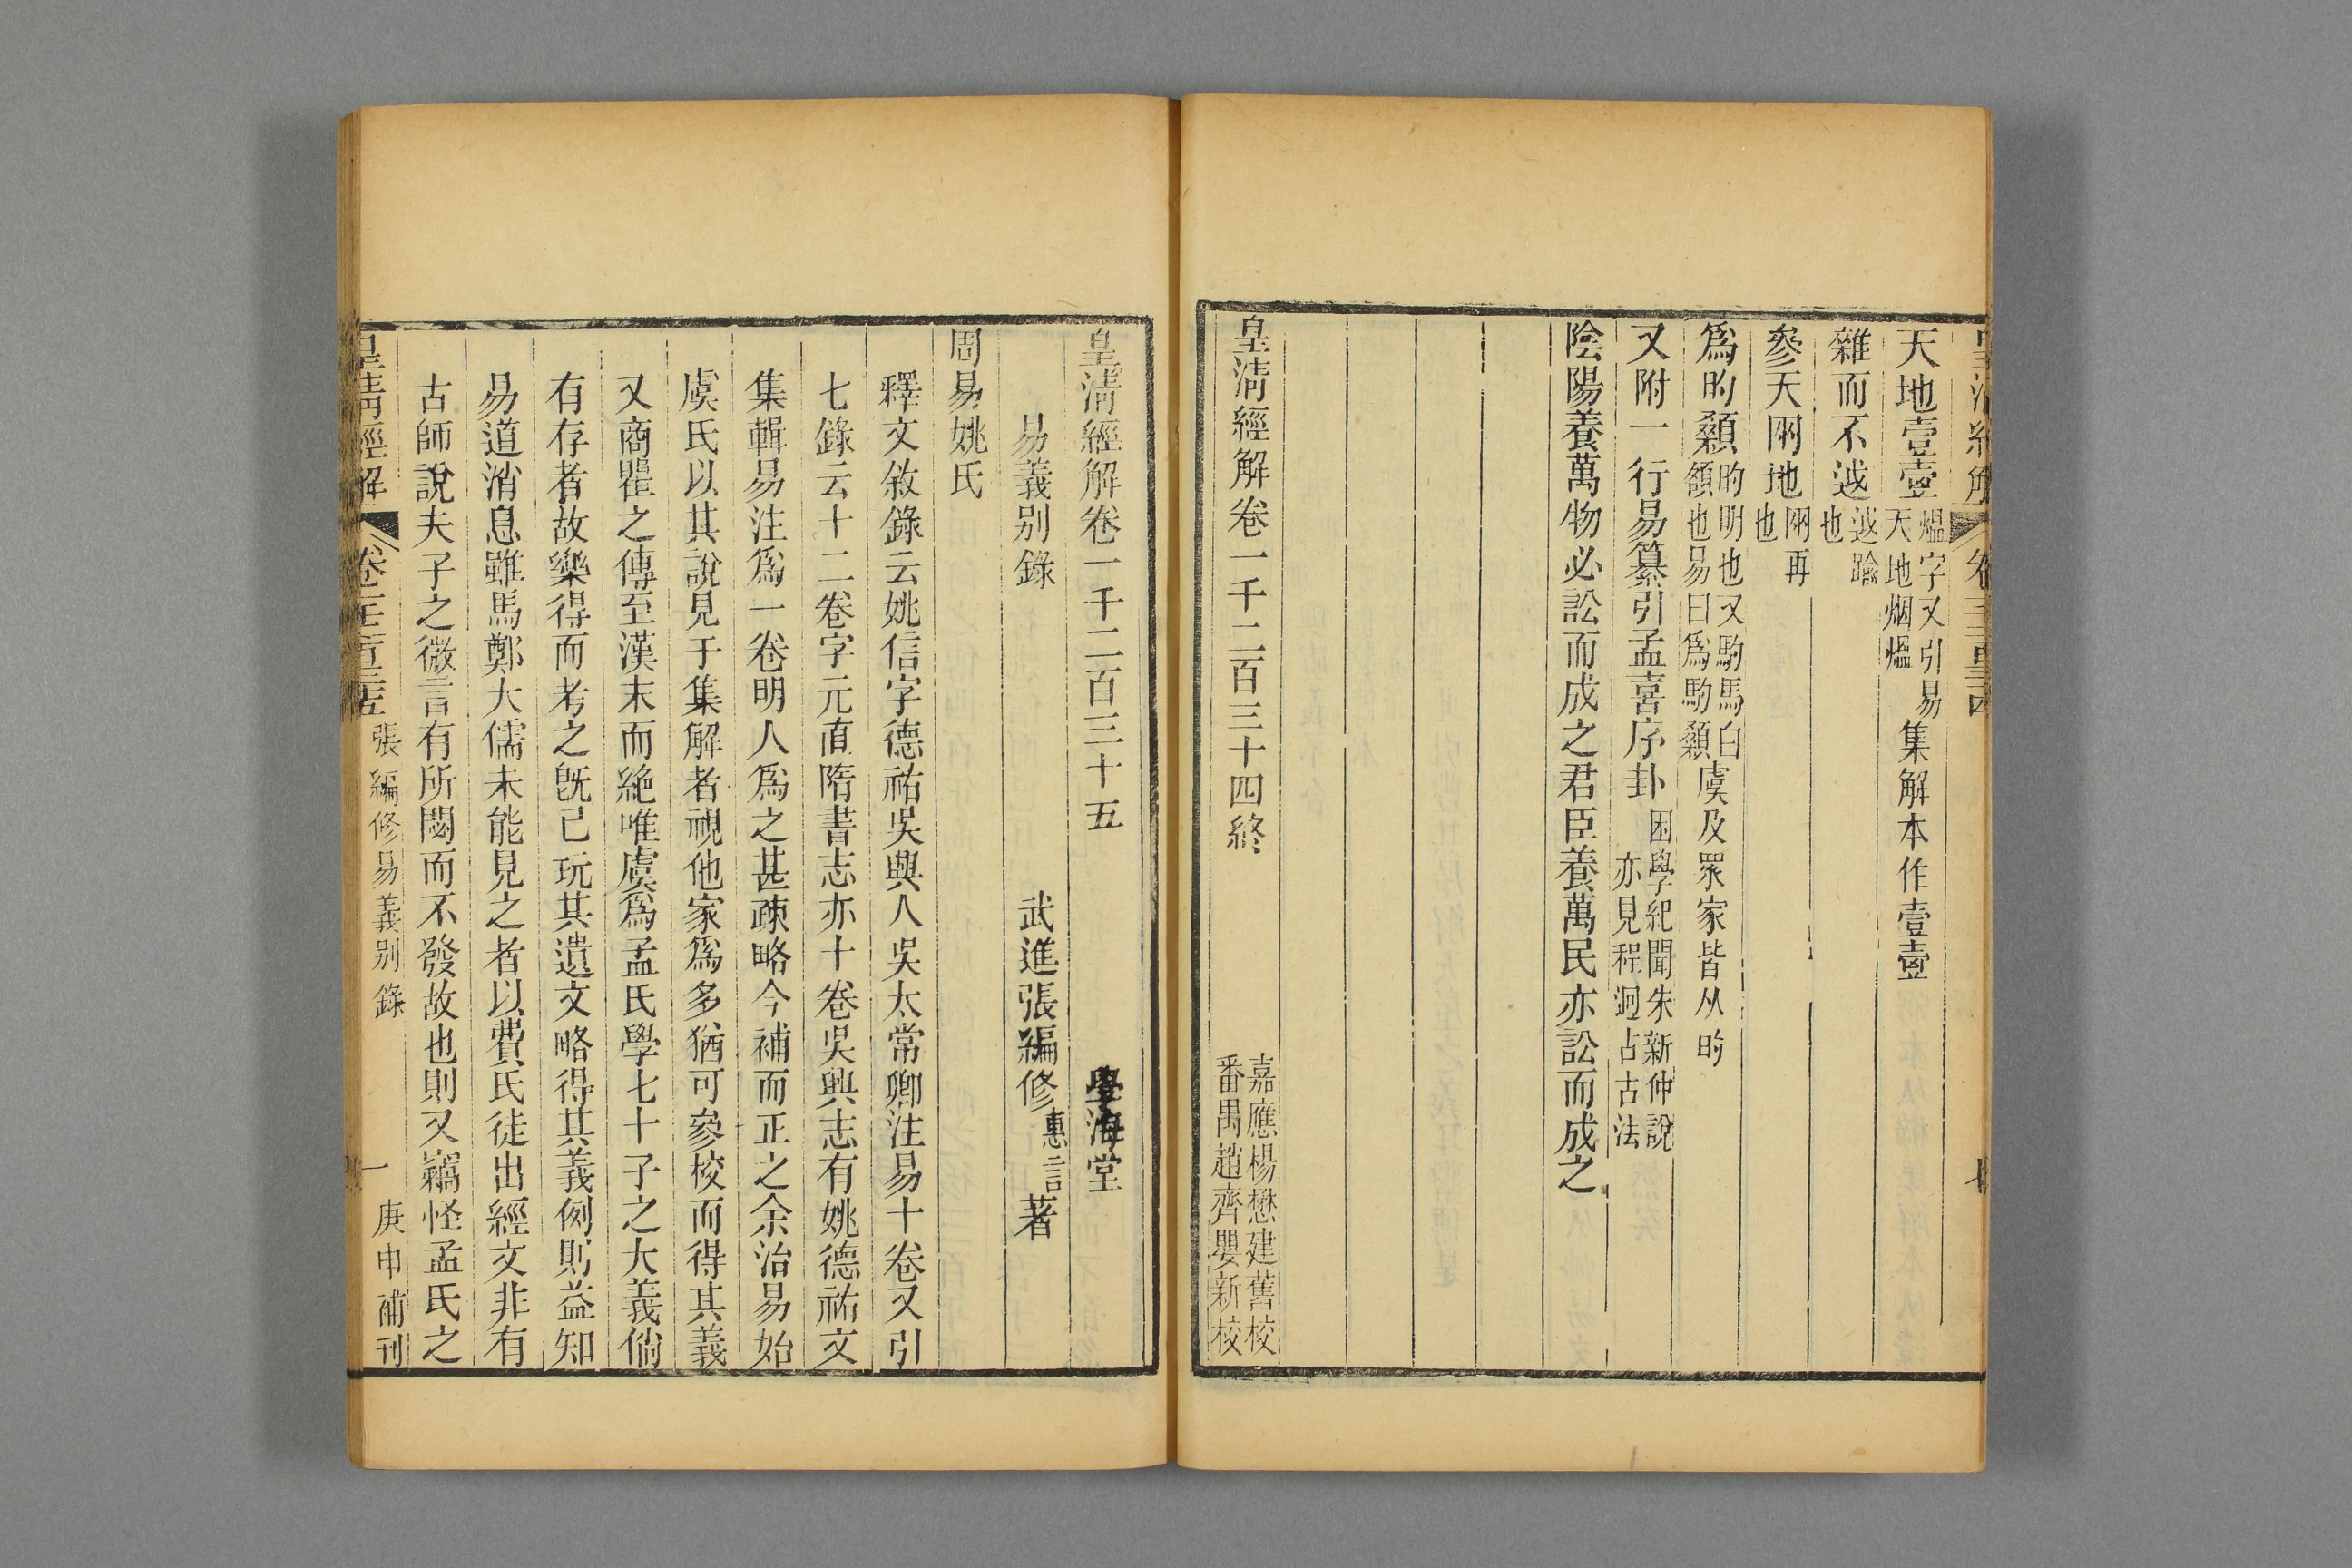 天地壹壺熅字又引易天地烟熅集解本作壹壺
雜而不𨒋𨒋踰也
參天㒳地㒳再也
爲旳顙旳明也又駒馬白頟也易曰爲駒顙虞及眾家皆从旳
又附一行易纂引孟喜序卦困學紀聞朱新仲說亦見程迥占古法
陰陽養萬物必訟而成之君臣養萬民亦訟而成之
皇淸經解卷一千二百三十四終
嘉應楊懋建舊校
番禺趙齊嬰新校
皇淸經解卷一千二百三十五
學海堂
易義别錄
武進張編修惠言著
周易姚氏
釋文敘錄云姚信字德祐吳興人吳太常卿注易十卷又引
七錄云十二卷字元直隋書志亦十卷吳興志有姚德祐文
集輯易注爲一卷明人爲之甚疎略今補而正之余治易始
虞氏以其說見于集解者視他家爲多猶可參校而得其義
又商瞿之傳至漢末而絶唯虞爲孟氏學七十子之大義倘
有存者故樂得而考之旣已玩其遺文略得其義例則益知
易道消息雖馬鄭大儒未能見之者以費氏徒出經文非有
古師說夫子之微言有所閟而不發故也則又竊怪孟氏之
皇清經解
卷一千二百三十五
張編修易義别錄
一
庚申補刊